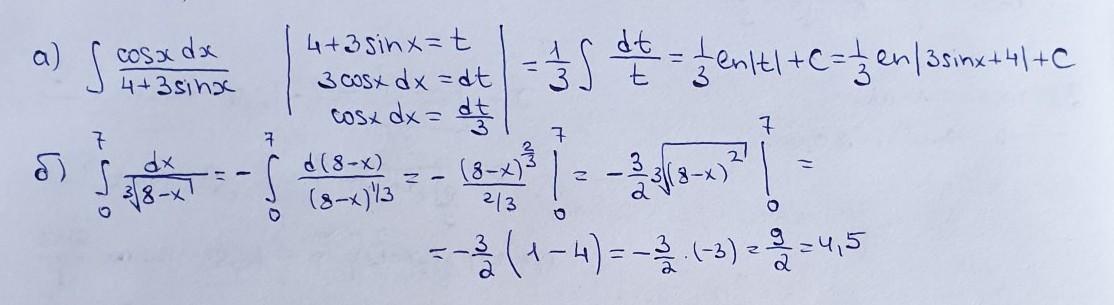 а) ∫ cosx dx / (4+3sinx) | 4+3sinx = t ; 3cosx dx = dt ; cosx dx = dt/3 | = 1/3 ∫ dt/t = 1/3 ln|t| + C = 1/3 ln|3sinx+4| + C
б) ∫₀⁷ dx / ∛(8-x) = - ∫₀⁷ d(8-x) / (8-x)^(1/3) = - (8-x)^(2/3) / (2/3) |₀⁷ = - 3/2 ∛((8-x)²) |₀⁷ =
= - 3/2 (1-4) = - 3/2 · (-3) = 9/2 = 4,5